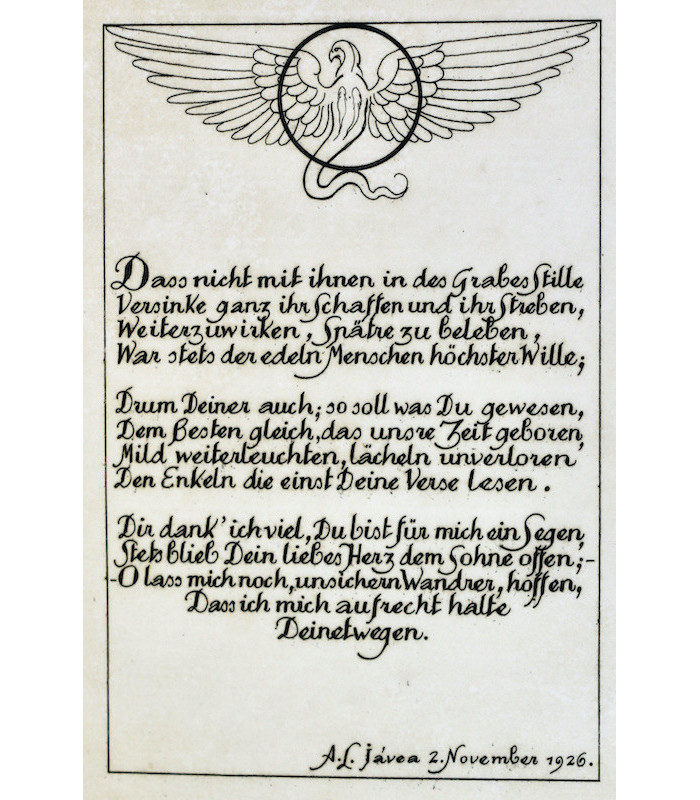 Dass nicht mit ihnen in des Grabes Stille
Versinke ganz ihr Schaffen und ihr Streben,
Weiterzuwirken, Spätre zu beleben,
War stets der edeln Menschen höchster Wille;
Drum Deiner auch; so soll was Du gewesen,
Dem Besten gleich, das unsre Zeit geboren,
Mild weiterleuchten, lächeln unverloren
Den Enkeln die einst Deine Verse lesen.
Dir dank' ich viel, Du bist für mich ein Segen,
Stets blieb Dein liebes Herz dem Sohne offen;-
-O lass mich noch, unsichern Wandrer, hoffen,
Dass ich mich aufrecht halte
Deinetwegen.
A.L. Jávea 2. November 1926.